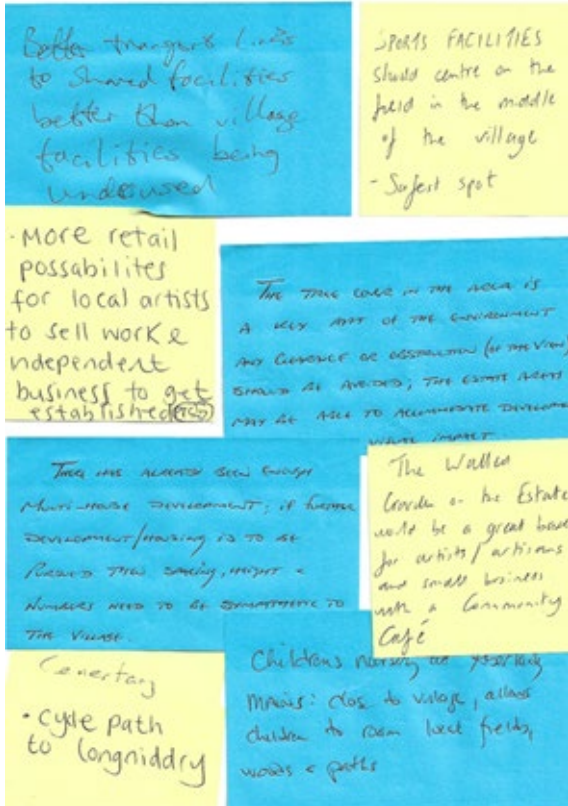 Better transport links
to shared facilities
better than village
facilities being
underused
SPORTS FACILITIES
should centre on the
field in the middle
of the village
- Safest spot
· More retail
possabilites
for local artists
to sell work &
independent
business to get
established
THE TREE COVER IN THE AREA IS
A KEY PART OF THE ENVIRONMENT
ANY CLEARANCE OR OBSTRUCTION (OF THE VIEW)
SHOULD BE AVOIDED; THE ESTATE AREAS
MAY BE ABLE TO ACCOMMODATE
VISUAL IMPACT
THERE HAS ALREADY BEEN ENOUGH
MULTI-HOUSE DEVELOPMENT; IF FURTHER
DEVELOPMENT/HOUSING IS TO BE
PURSUED THEN SPACING, HEIGHT &
NUMBERS NEED TO BE SYMPATHETIC TO
THE VILLAGE.
The Walled
Garden on the Estate
would be a great base
for artists/artisans
and small business
with a Community
Café
· cycle path
to longniddry
Childrens nursery
Mains: close to village, allows
children to roam local fields,
woods & paths